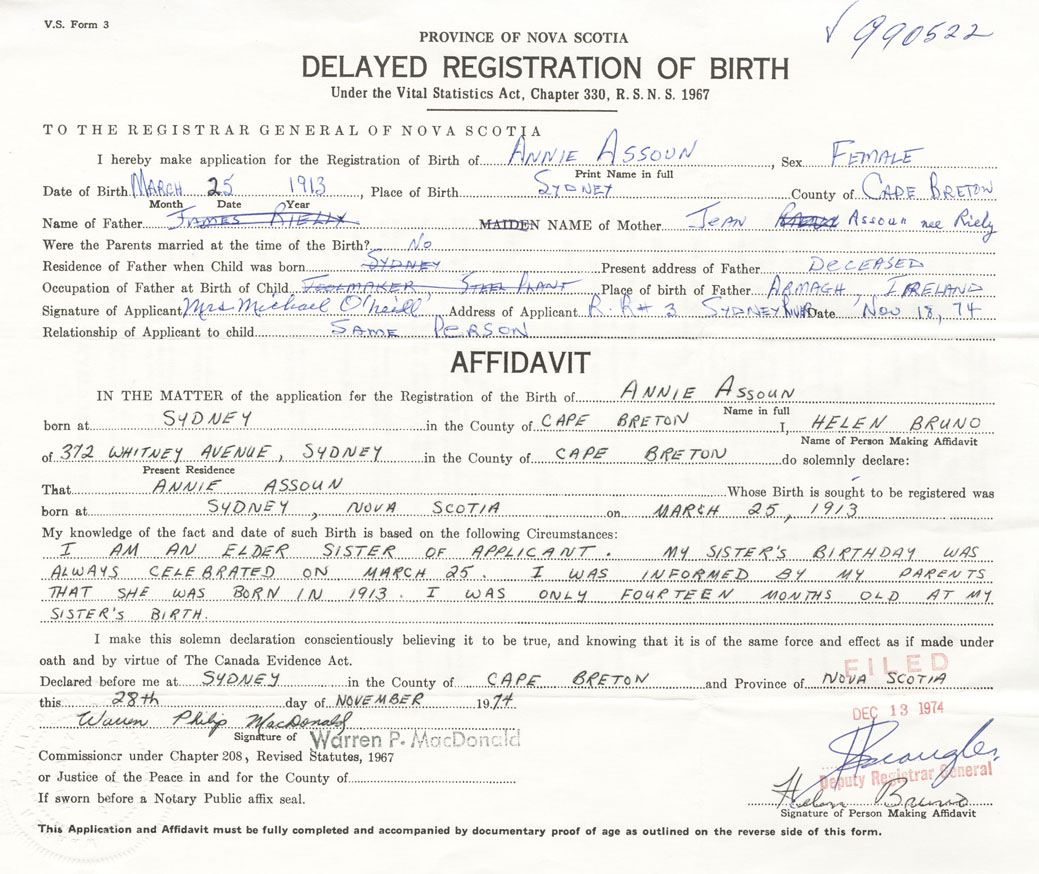 V.S. Form 3
√ 990522
PROVINCE OF NOVA SCOTIA
DELAYED REGISTRATION OF BIRTH
Under the Vital Statistics Act, Chapter 330, R.S.N.S. 1967
TO THE REGISTRAR GENERAL OF NOVA SCOTIA
I hereby make application for the Registration of Birth of ANNIE ASSOUN, Sex FEMALE
Print Name in full
Date of Birth MARCH 25 1913, Place of Birth SYDNEY County of CAPE BRETON
Month Date Year
Name of Father JAMES RIELLY MAIDEN NAME of Mother JEAN Assoun nee Riely
Were the Parents married at the time of the Birth? No
Residence of Father when Child was born SYDNEY Present address of Father DECEASED
Occupation of Father at Birth of Child TOOLMAKER STEEL PLANT Place of birth of Father ARMAGH, IRELAND
Signature of Applicant Mrs Michael O'Neill Address of Applicant R.R# 3 SYDNEY RIVER Date NOV 18, 74
Relationship of Applicant to child SAME PERSON
AFFIDAVIT
IN THE MATTER of the application for the Registration of the Birth of ANNIE ASSOUN
Name in full
born at SYDNEY in the County of CAPE BRETON I, HELEN BRUNO
Name of Person Making Affidavit
of 372 WHITNEY AVENUE, SYDNEY in the County of CAPE BRETON do solemnly declare:
Present Residence
That ANNIE ASSOUN Whose Birth is sought to be registered was
born at SYDNEY, NOVA SCOTIA on MARCH 25, 1913
My knowledge of the fact and date of such Birth is based on the following Circumstances:
I AM AN ELDER SISTER OF APPLICANT. MY SISTER'S BIRTHDAY WAS
ALWAYS CELEBRATED ON MARCH 25. I WAS INFORMED BY MY PARENTS
THAT SHE WAS BORN IN 1913. I WAS ONLY FOURTEEN MONTHS OLD AT MY
SISTER'S BIRTH.
I make this solemn declaration conscientiously believing it to be true, and knowing that it is of the same force and effect as if made under
oath and by virtue of The Canada Evidence Act.
FILED
Declared before me at SYDNEY in the County of CAPE BRETON and Province of NOVA SCOTIA
this 28th day of NOVEMBER 1974.
DEC 13 1974
Warren Philip MacDonald
Signature of Warren P. MacDonald
Commissioner under Chapter 208, Revised Statutes, 1967
Deputy Registrar General
or Justice of the Peace in and for the County of
Helen Bruno
If sworn before a Notary Public affix seal.
Signature of Person Making Affidavit
This Application and Affidavit must be fully completed and accompanied by documentary proof of age as outlined on the reverse side of this form.